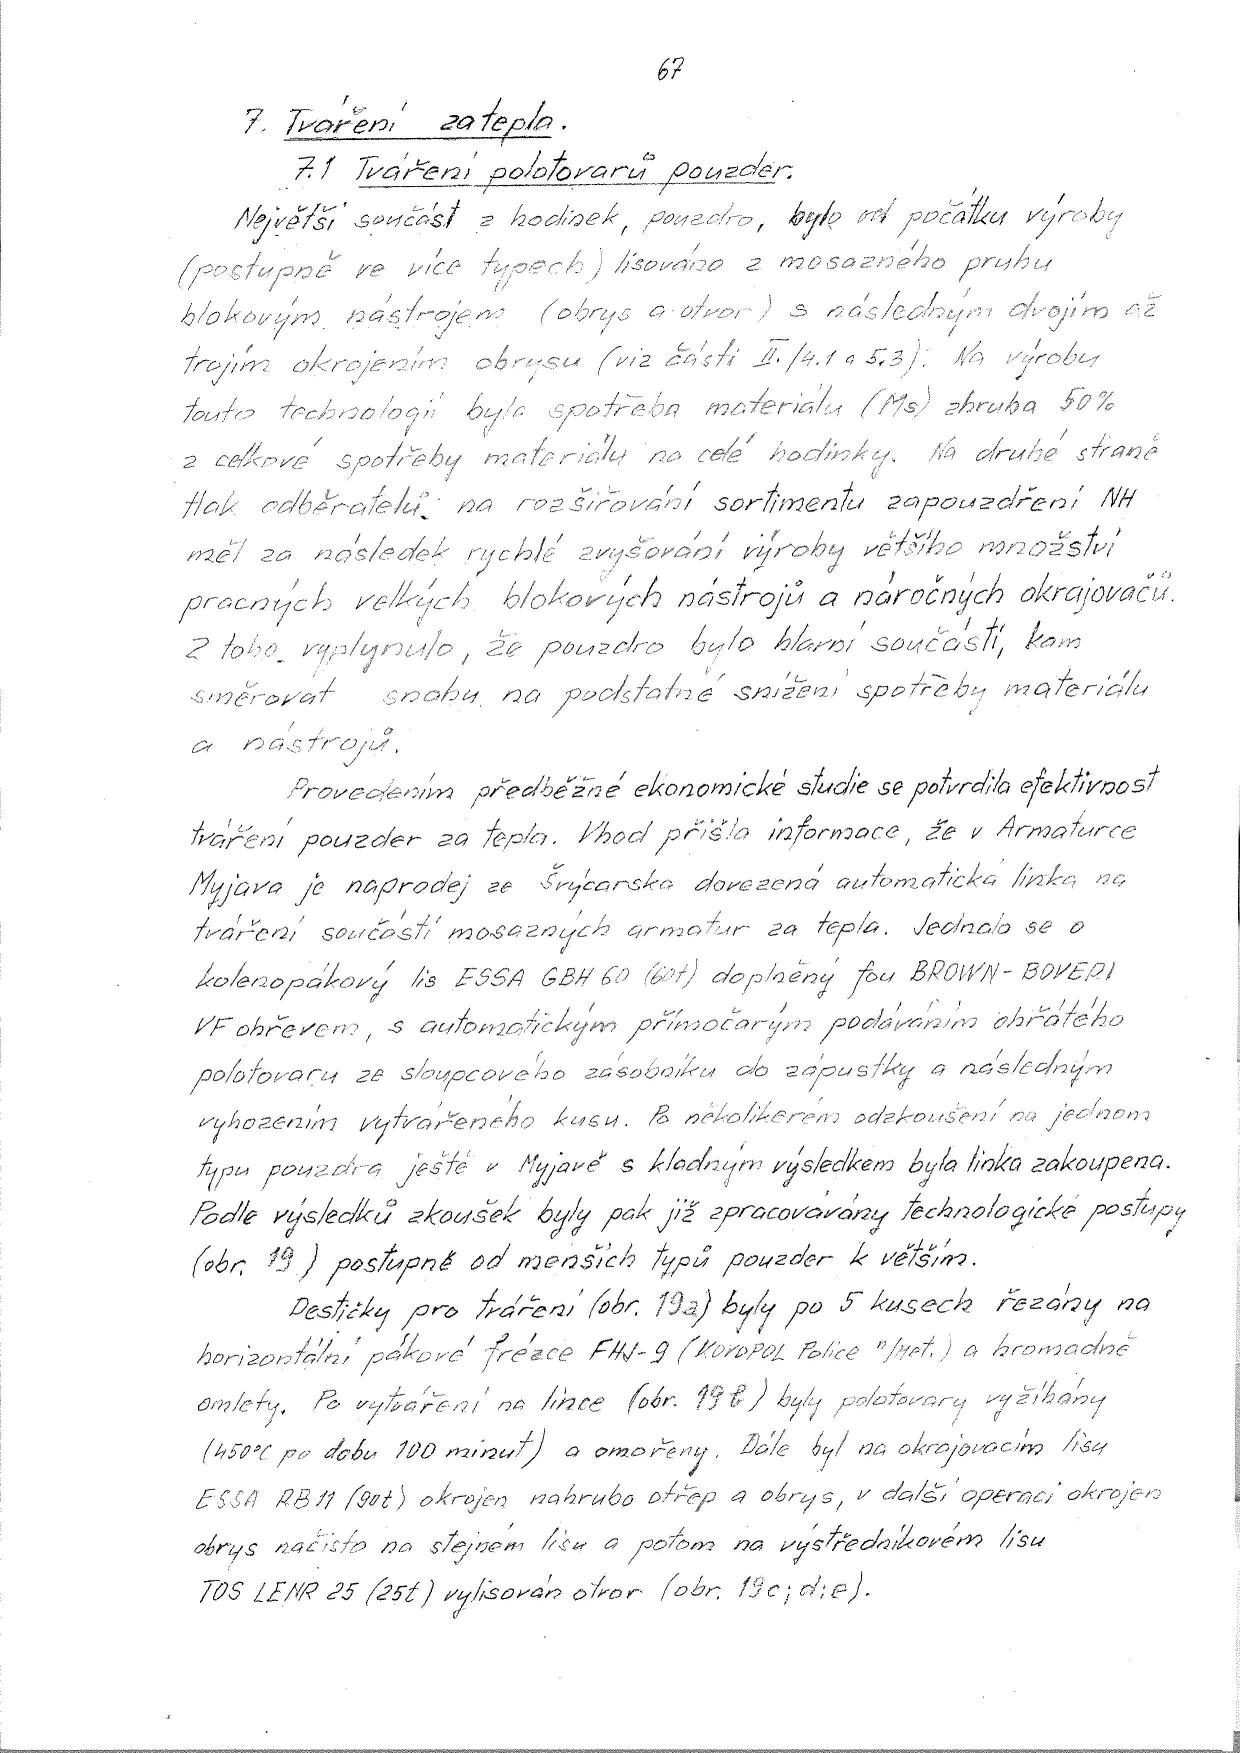 67
7. Tváření za tepla.
7.1 Tváření polotovarů pouzder.
Největší součást z hodinek, pouzdro, bylo od počátku výroby
(postupně ve více typech) lisováno z mosazného pruhu
blokovým nástrojem (obrys a otvor) s následným dvojím až
trojím okrojením obrysu (viz části II./4.1 a 5.3). Na výrobu
touto technologií byla spotřeba materiálu (Ms) zhruba 50%
z celkové spotřeby materiálu na celé hodinky. Na druhé straně
tlak odběratelů na rozšiřování sortimentu zapouzdření NH
měl za následek rychlé zvyšování výroby většího množství
pracných velkých blokových nástrojů a náročných okrajovačů.
Z toho vyplynulo, že pouzdro bylo hlavní součástí, kam
směrovat snahu na podstatné snížení spotřeby materiálu
a nástrojů.
Provedením předběžné ekonomické studie se potvrdila efektivnost
tváření pouzder za tepla. Vhod přišla informace, že v Armaturce
Myjava je naprodej ze Švýcarska dovezená automatická linka na
tváření součástí mosazných armatur za tepla. Jednalo se o
kolenopákový lis ESSA GBH 60 (60t) doplněný fou BROWN-BOVERI
VF ohřevem, s automatickým přímočarým podáváním ohřátého
polotovaru ze sloupcového zásobníku do zápustky a následným
vyhozením vytvářeného kusu. Po několikerém odzkoušení na jednom
typu pouzdra ještě v Myjavě s kladným výsledkem byla linka zakoupena.
Podle výsledků zkoušek byly pak již zpracovávány technologické postupy
(obr. 19) postupně od menších typů pouzder k větším.
Destičky pro tváření (obr. 19a) byly po 5 kusech řezány na
horizontální pákové frézce FHJ-9 (KOVOPOL Police n/Met.) a hromadně
omlety. Po vytváření na lince (obr. 19b) byly polotovary vyžíhány
(450°C po dobu 100 minut) a omořeny. Dále byl na okrajovacím lisu
ESSA RB11 (90t) okrojen nahrubo otřep a obrys, v další operaci okrojen
obrys načisto na stejném lisu a potom na výstředníkovém lisu
TOS LENR 25 (25t) vylisován otvor (obr. 19c;d;e).